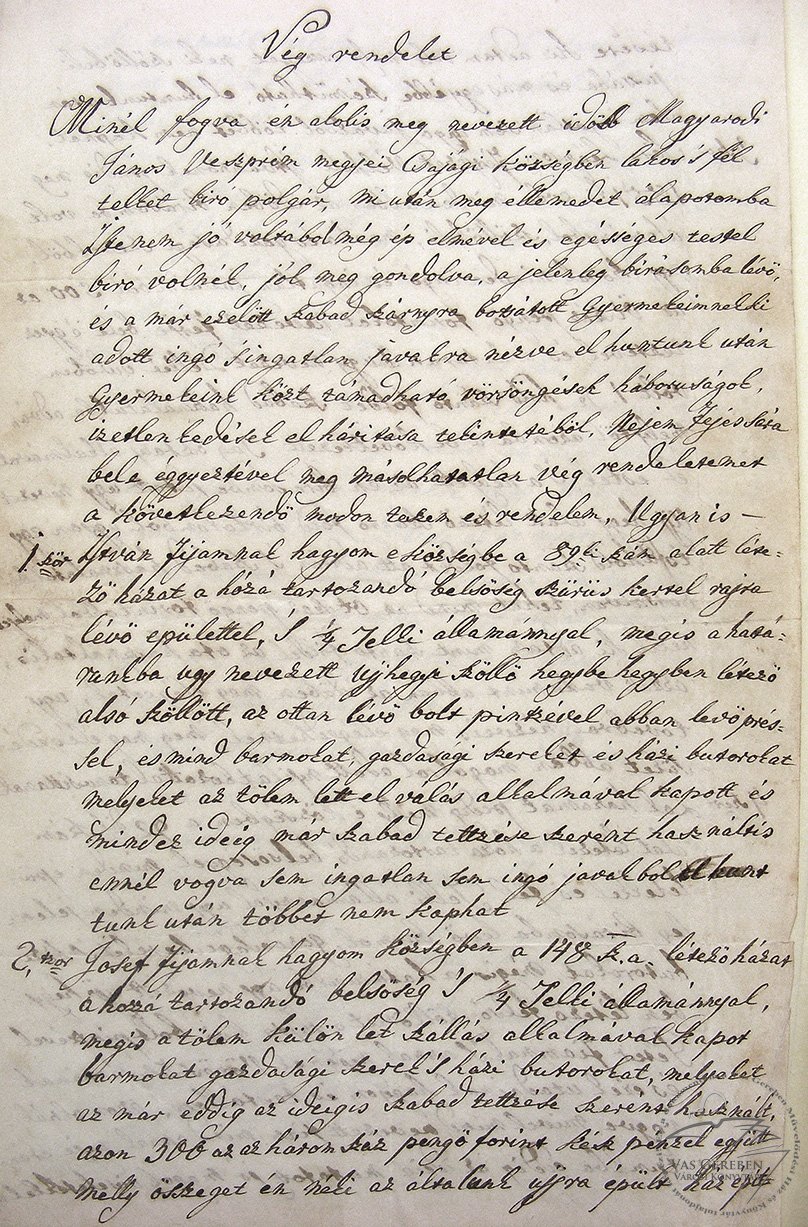 Vég rendelet
Minél fogva én alolis meg nevezett időbb Magyarodi
János Veszprém megyei Csajági községben lakos 's fél
telket biró polgár, mi után meg éllemedet álapotomba
Istenem jó voltából még ép elmével és egésséges testel
biró volnék, jól meg gondolva, a jelenleg birásomba lévö,
és a már ezelött szabad szárnyra botsátott Gyermekeimnek ki
adott ingó 's ingatlan javakra nézve el huntunk után
Gyermekeink közt támadható vörsöngések háboruságok,
izetlenkedések el háritása tekintetéböl, Nejem Fejes Sára
bele éggyeztével meg másolhatatlan vég rendeletemet
a következendö modon teszen és rendelem, Ugyan is —
1 ször István fijamnak hagyom e községbe a 89ik szám alatt léte-
zö házat a hózá tartozandó belsöség szürüs kertel rajta
lévö epülettel, 'S 1/4 Telki állománnyal, megis a hatá-
runkba ugy nevezett ujhegyi szöllö hegybe hegyben létezö
alsó szöllött, az ottan lévö bolt pintzével abban levö prés-
sel, és mind barmokat, gazdasagi szereket és házi butorokat
melyeket az tölem lett el válás alkalmával kapott és
mindez ideig már szabad tettzése szerént használtis
ennél vogva sem ingatlan sem ingó javakbol el hunt
tunk után többet nem kaphat
2, szor Josef fijamnak hagyom községben a 148 sz. a. létezö házat
a hozzá tartozandó belsöség 'S 1/4 Telki állománnyal,
megis a tölem külön let szállás alkalmával kapot
barmokat gazdasági szerek 's házi butorokat, melyeket
az már eddig az ideigis szabad tettzése szerént használt,
azon 300 az az három száz pengö forint kész penzel együtt
melly összeget én néki az általunk ujra épült ház épit-
VAS GEREBEN
VÁROSI KÖNYVTÁR